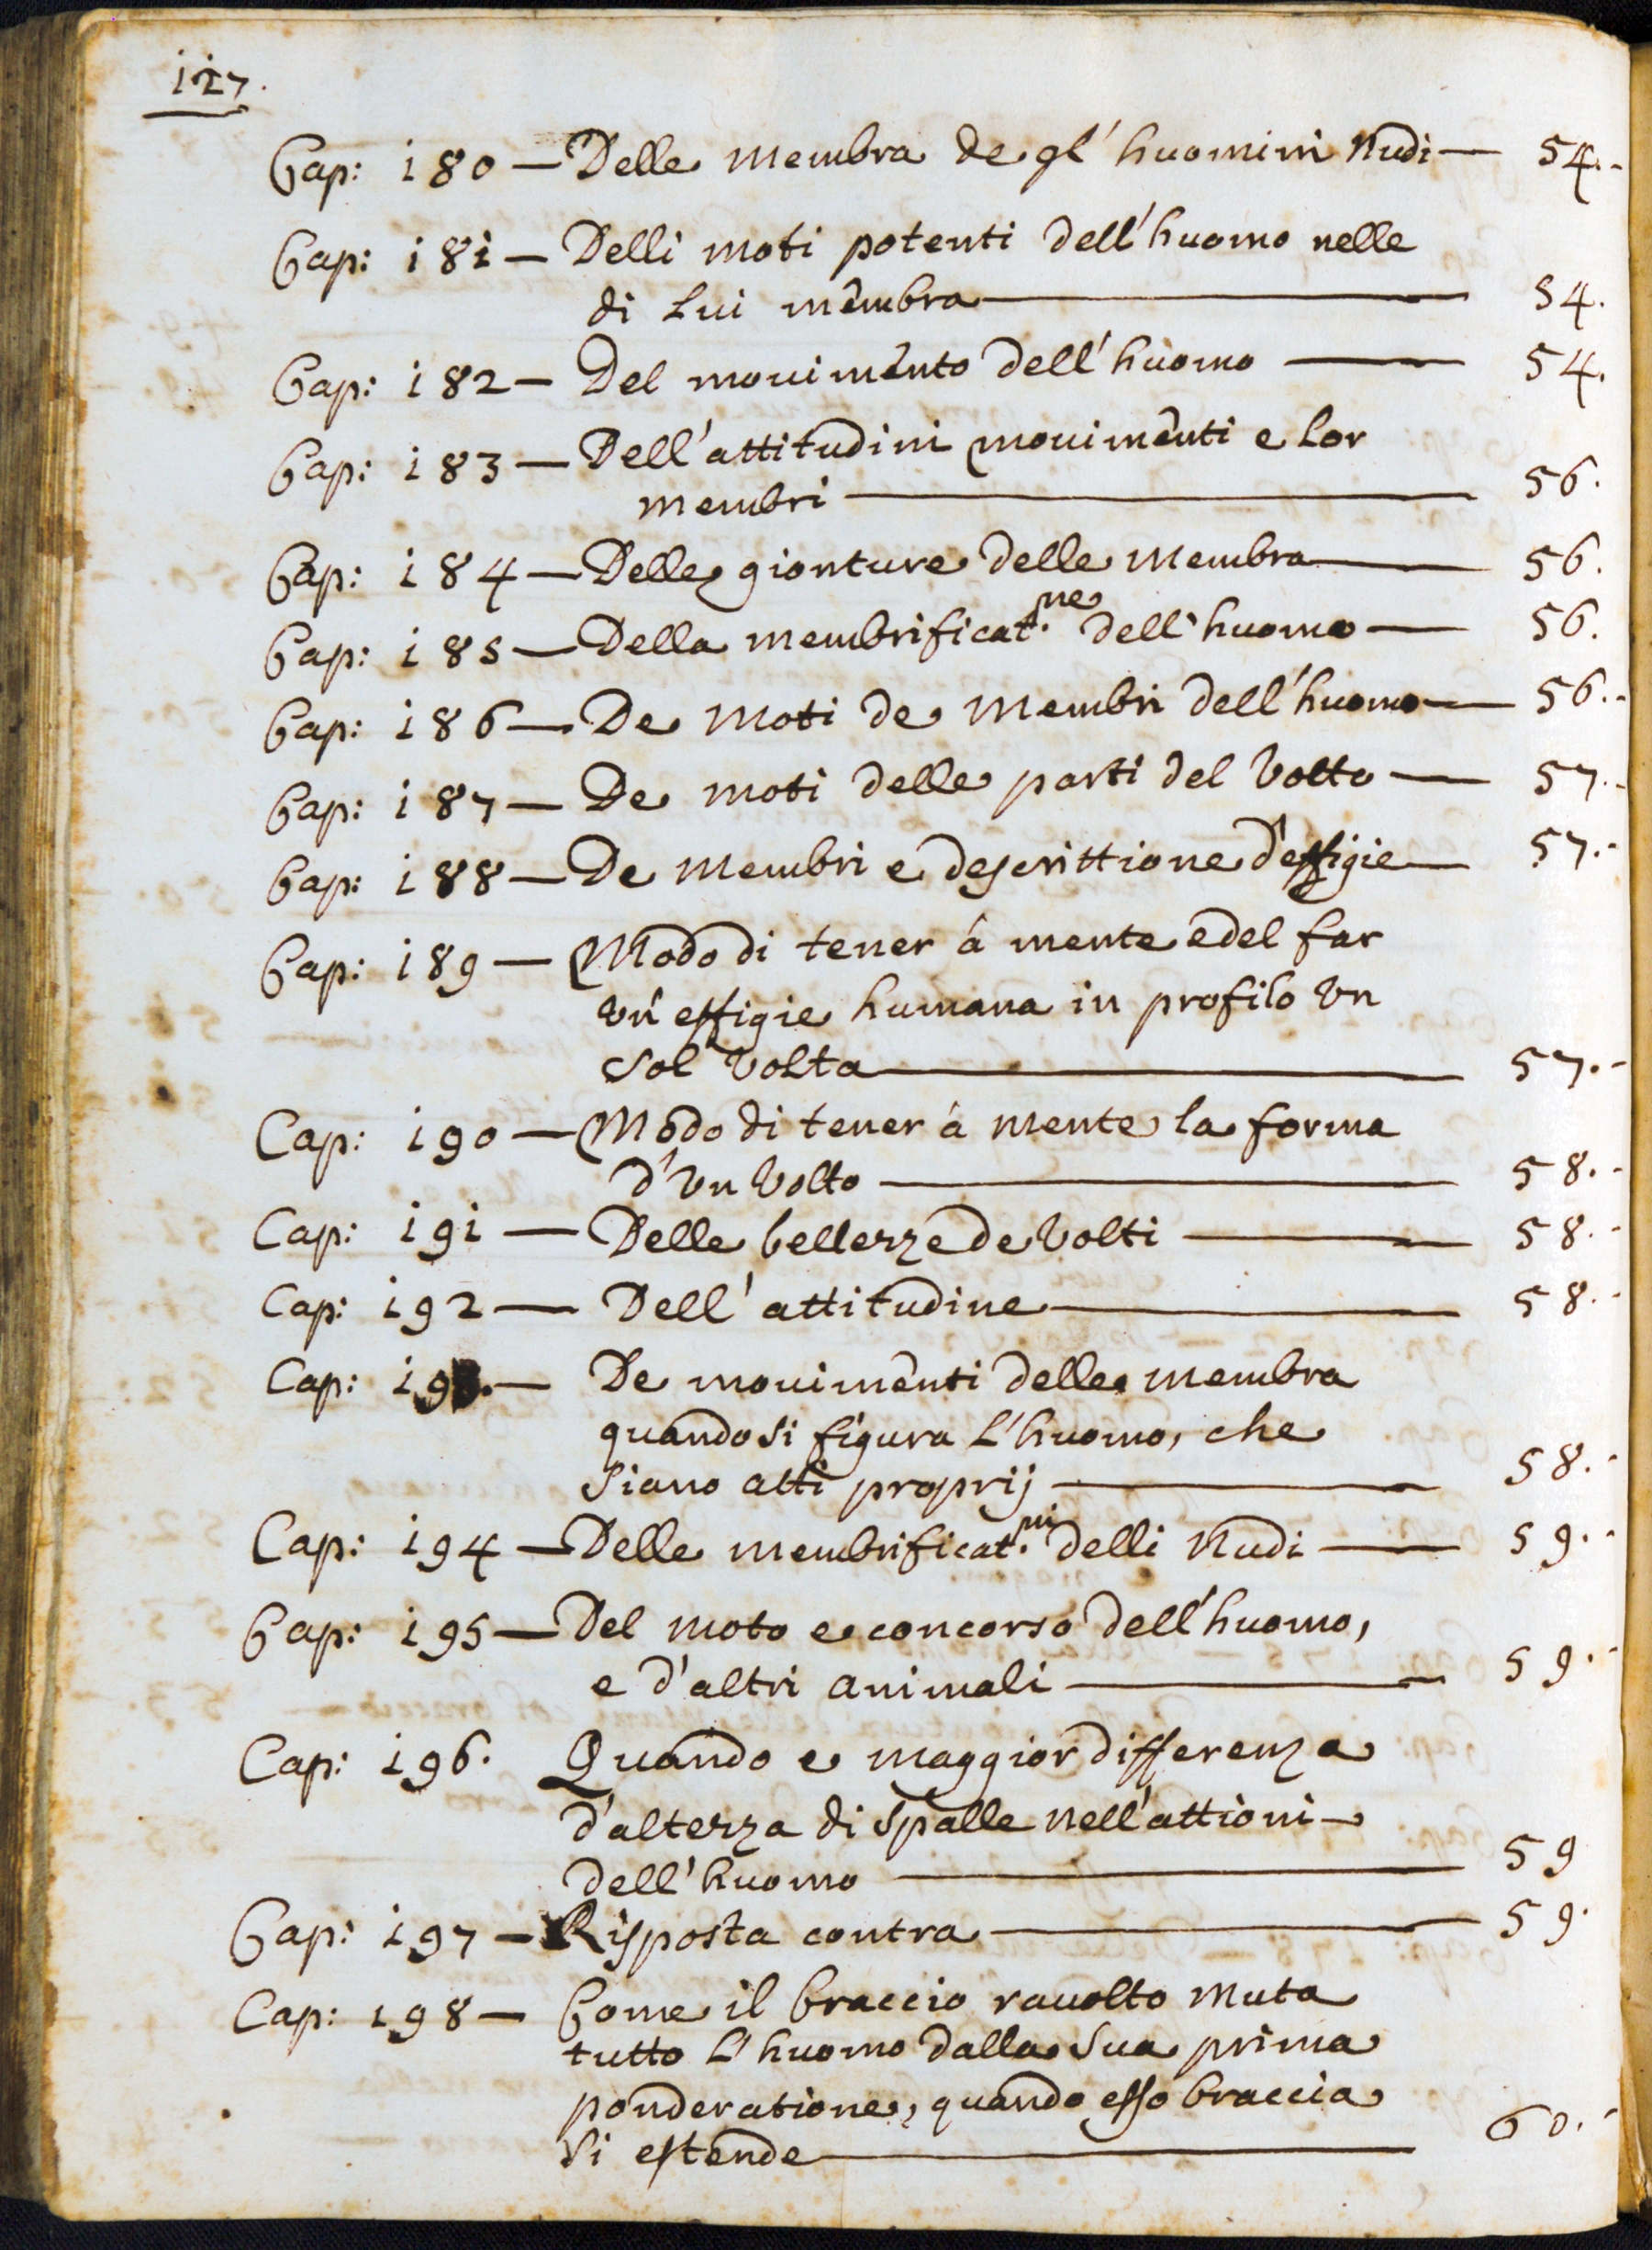 127.
Cap: 180 — Delle membra de gl' huomini nudi — 54.
Cap: 181 — Delli moti potenti dell'huomo nelle
di lui membra — 54.
Cap: 182 — Del mouimento dell'huomo — 54.
Cap: 183 — Dell'attitudini mouimenti e lor
membri — 56.
Cap: 184 — Delle gionture delle membra — 56.
Cap: 185 — Della membrificat.ne dell'huomo — 56.
Cap: 186 — De moti de membri dell'huomo — 56.
Cap: 187 — De moti delle parti del volto — 57.
Cap: 188 — De membri e descrittione d'effigie — 57.
Cap: 189 — Modo di tener à mente e del far
vn'effigie humana in profilo vn
sol volta — 57.
Cap: 190 — Modo di tener à mente la forma
d'vn volto — 58.
Cap: 191 — Delle bellezze de volti — 58.
Cap: 192 — Dell'attitudine — 58.
Cap: 193. — De mouimenti delle membra
quando si figura l'huomo, che
siano atti proprij — 58.
Cap: 194 — Delle membrificat.ni delli nudi — 59.
Cap: 195 — Del moto e concorso dell'huomo,
e d'altri animali — 59.
Cap: 196. Quando e maggior differenza
d'altezza di spalle nell'attioni
dell'huomo — 59
Cap: 197 — Risposta contra — 59.
Cap: 198 — Come il braccio rauolto muta
tutto l'huomo dalla sua prima
ponderatione, quando esso braccia
si estende — 60.